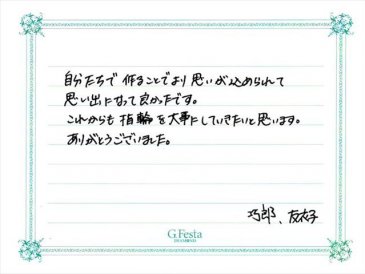 自分たちで作ることでより思いが込められて
思い出になって良かったです。
これからも指輪を大事にしていきたいと思います。
ありがとうございました。
巧郎、友衣子
G.Festa
DIAMOND